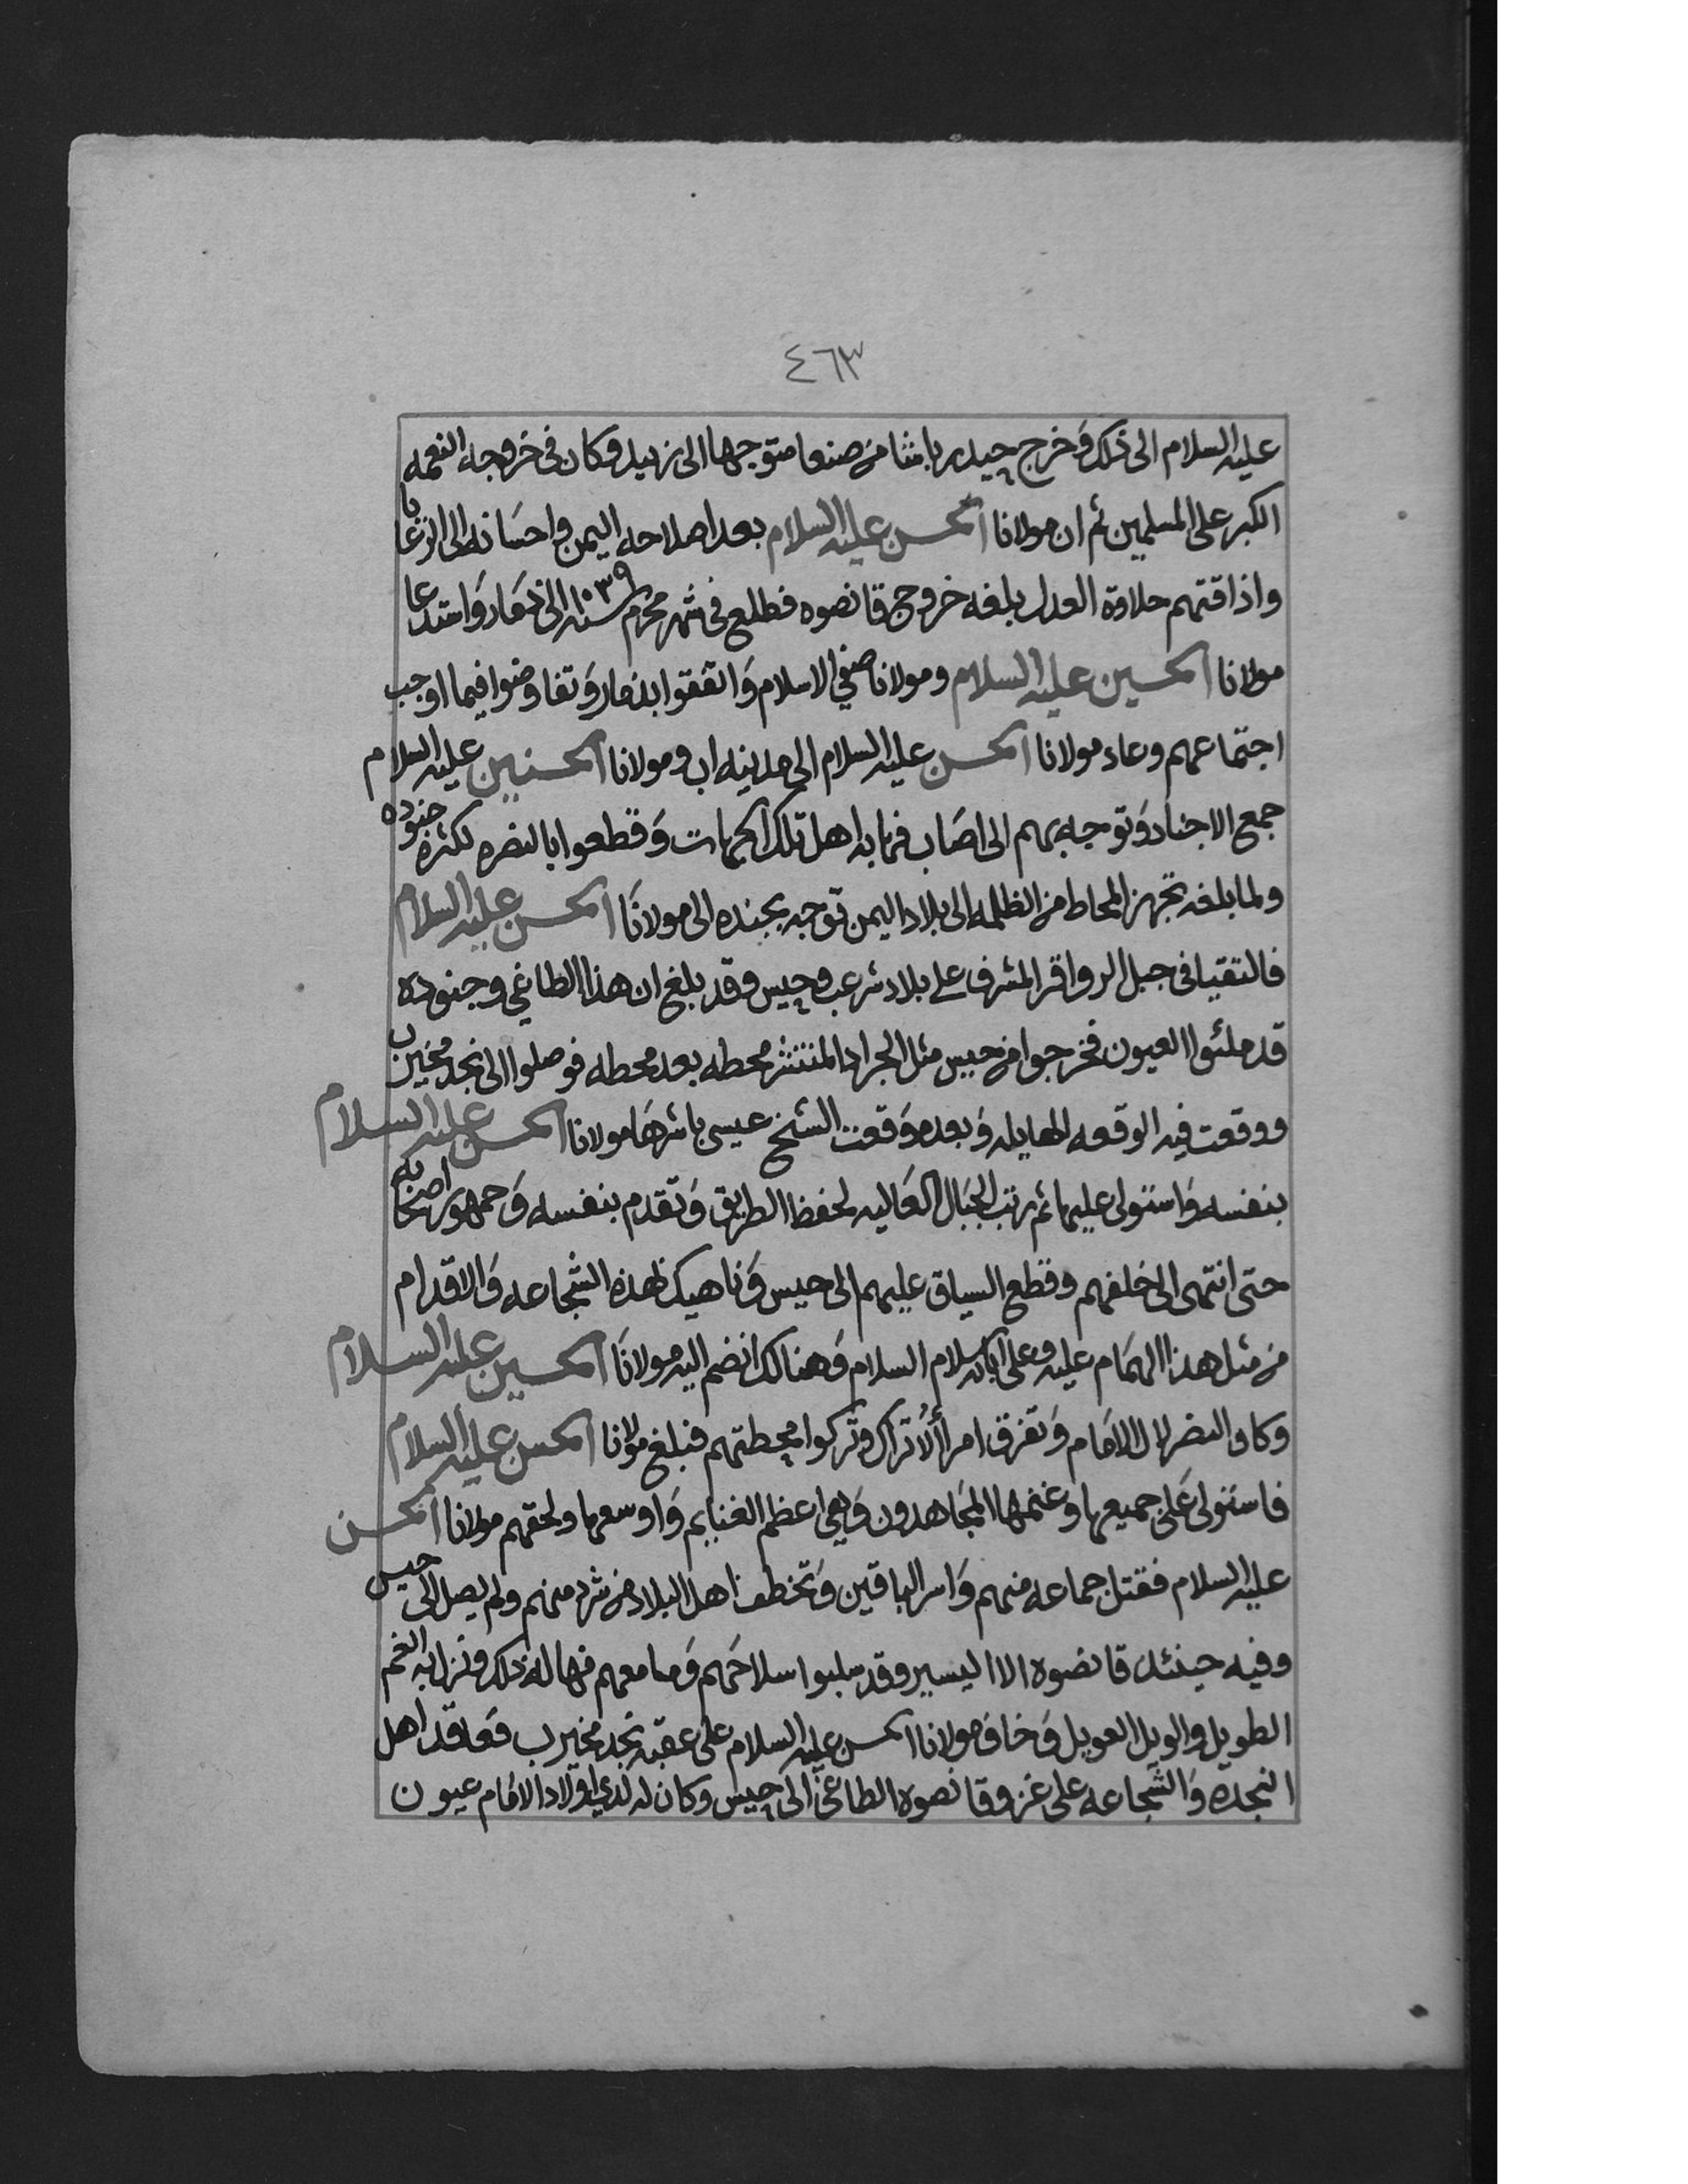 ٤٦٣
عليه السلام الى ذلك وخرج حيدر باشا من صنعا متوجها الى زبيد وكان في خروجه النعمه
الكبر على المسلمين ثم ان مولانا الحسن عليه السلام بعد اصلاحه اليمن واحسانه الى الرعايا
واذاقتهم حلاوة العدل بلغه خروج قانصوه فطلع في شهر محرم سنه ١٠٣٩ الى ذمار واستدعا
مولانا الحسين عليه السلام ومولانا صفي الاسلام واتفقوا بذمار وتفاوضوا فيما اوجب
اجتماعهم وعاد مولانا الحسن عليه السلام الى مدينه اب ومولانا الحسين عليه السلام
جمع الاجناد وتوجه بهم الى اصاب فهابه اهل تلك الجهات وقطعوا بالنصره لكثره جنوده
ولما بلغه تجهز المحاط من الظلمه الى بلاد اليمن توجه بجنده الى مولانا الحسن عليه السلام
فالتقيا في جبل الرواقر المشرف على بلاد شرعب وحيس وقد بلغ ان هذا الطاغي وجنوده
قد ملئوا العيون فخرجوا من حيس مثل الجراد المنتشر محطه بعد محطه فوصلوا الى نجد مخيرب
ووقعت فيه الوقعه الهايله وبعده وقعت الشيخ عيسى باشرها مولانا الحسن عليه السلام
بنفسه واستولى عليها ثم رتب الجبال العاليه لحفظ الطريق وتقدم بنفسه وجمهور اصحابه
حتى انتهى الى خلفهم وقطع السياق عليهم الى حيس وناهيك لهذه الشجاعه والاقدام
من مثل هذا الهمام عليه وعلى ابائه السلام وهنالك انضم اليه مولانا الحسين عليه السلام
وكان النصر لال الامام وتفرق امرا الاتراك وتركوا محطتهم فبلغ مولانا الحسن عليه السلام
فاستولى على جميعها وغنمها المجاهدون وهي اعظم الغنايم واوسعها ولحقهم مولانا الحسن
عليه السلام فقتل جماعه منهم واسر الباقين وتخطف اهل البلاد من شرد منهم ولم يصل الى حيس
وفيه حينئذ قانصوه الا اليسير وقد سلبوا سلاحهم وما معهم فهاله ذلك ونزل به الغم
الطويل والويل العويل وخاف مولانا الحسن عليه السلام على عقبه نجد مخيرب فعاقد اهل
النجده والشجاعه على غزو قانصوه الطاغي الى حيس وكان له لدي اولاد الامام عيون